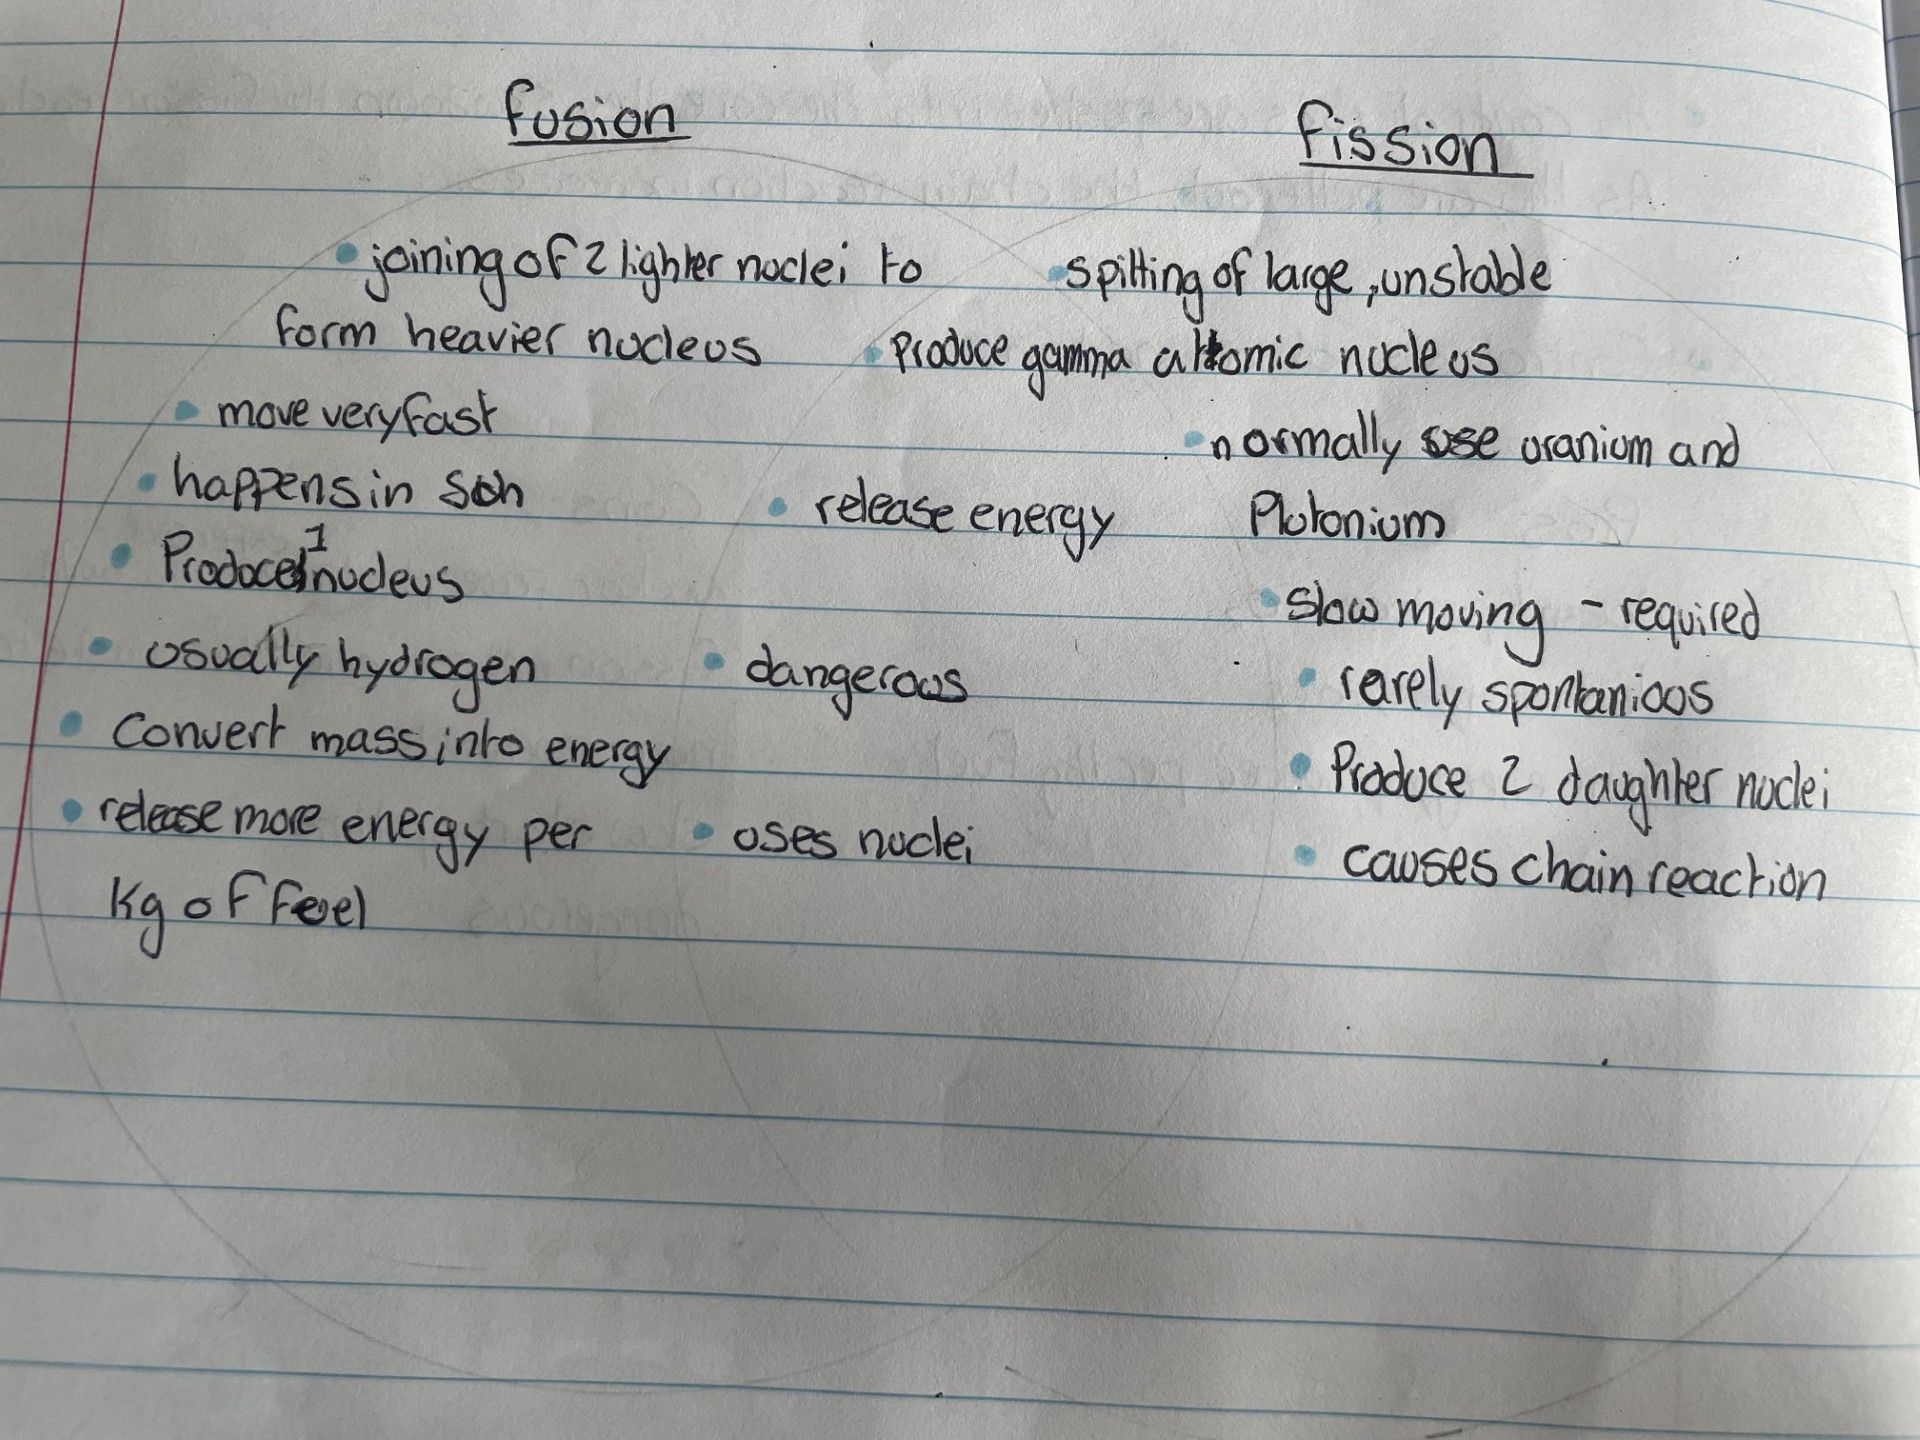 fusion
fission
• joining of 2 lighter nuclei to
form heavier nucleus
• move very fast
• happens in sun
• Produce 1 nucleus
• usually hydrogen
• Convert mass into energy
• release more energy per
Kg of fuel
• Produce gamma
• release energy
• dangerous
• uses nuclei
• spitting of large, unstable
attomic nucleus
• normally use uranium and
Plutonium
• slow moving - required
• rarely spontanious
• Produce 2 daughter nuclei
• causes chain reaction